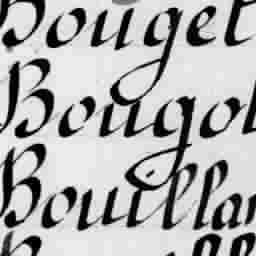 Bouget
Bougol
Bouillan